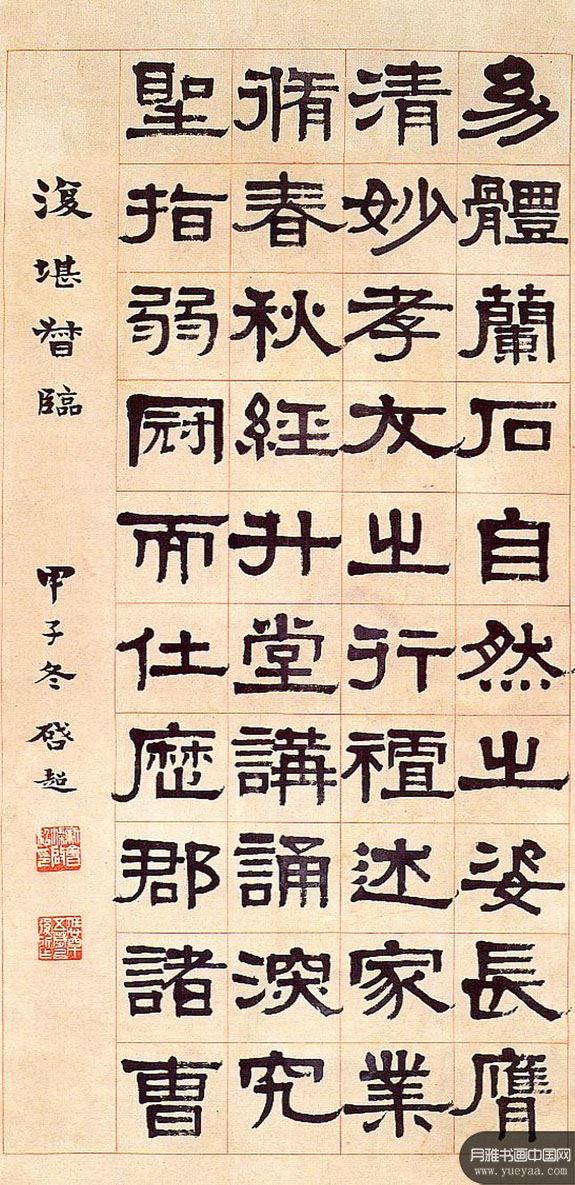 幼體蘭石自然之姿長膺
清妙孝友之行襢述家業
脩春秋經升堂講誦深究
聖指弱冠而仕歷郡諸曹
復堪督臨
甲子冬 啓超
新會梁啟超印
月雅书画中国网
www.yueyaa.com